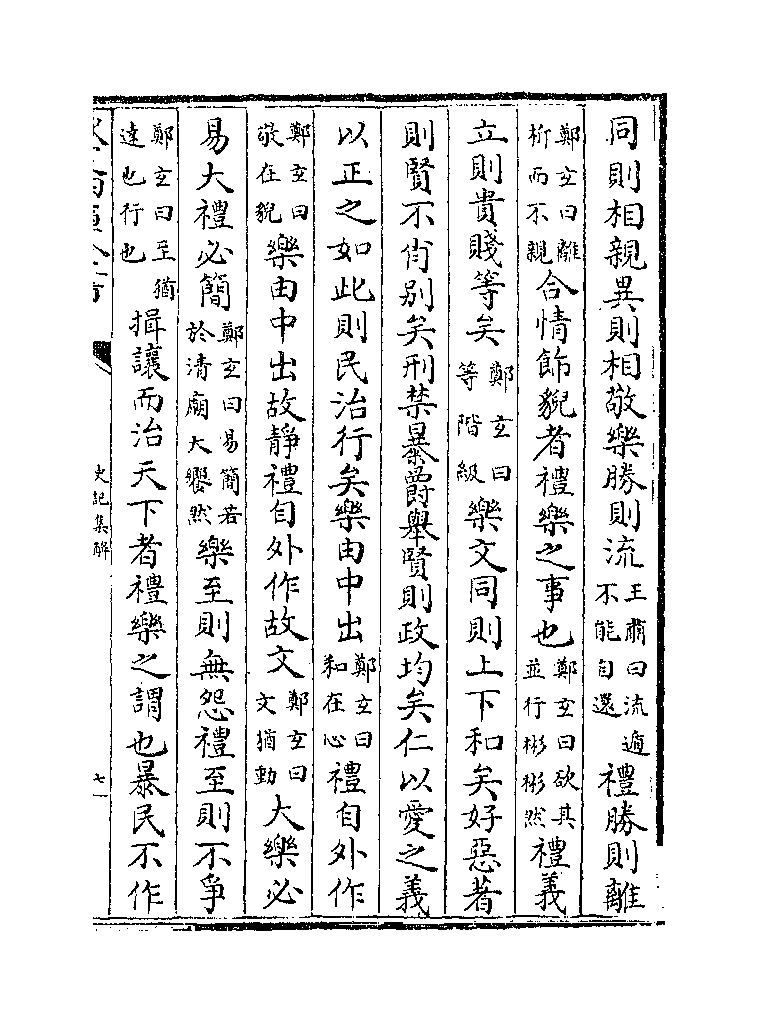 同則相親異則相敬樂勝則流王肅曰流遁不能自還禮勝則離
鄭玄曰離析而不親合情飾貎者禮樂之事也鄭玄曰欲其並行彬彬然禮義
立則貴賤等矣鄭玄曰等階級樂文同則上下和矣好惡著
則賢不肖别矣刑禁暴爵舉賢則政均矣仁以愛之義
以正之如此則民治行矣樂由中出鄭玄曰和在心禮自外作
鄭玄曰敬在貎樂由中出故靜禮自外作故文鄭玄曰文猶動大樂必
易大禮必簡鄭玄曰易簡若於清廟大饗然樂至則無怨禮至則不爭
鄭玄曰至猶達也行也揖讓而治天下者禮樂之謂也暴民不作
史記集解
七